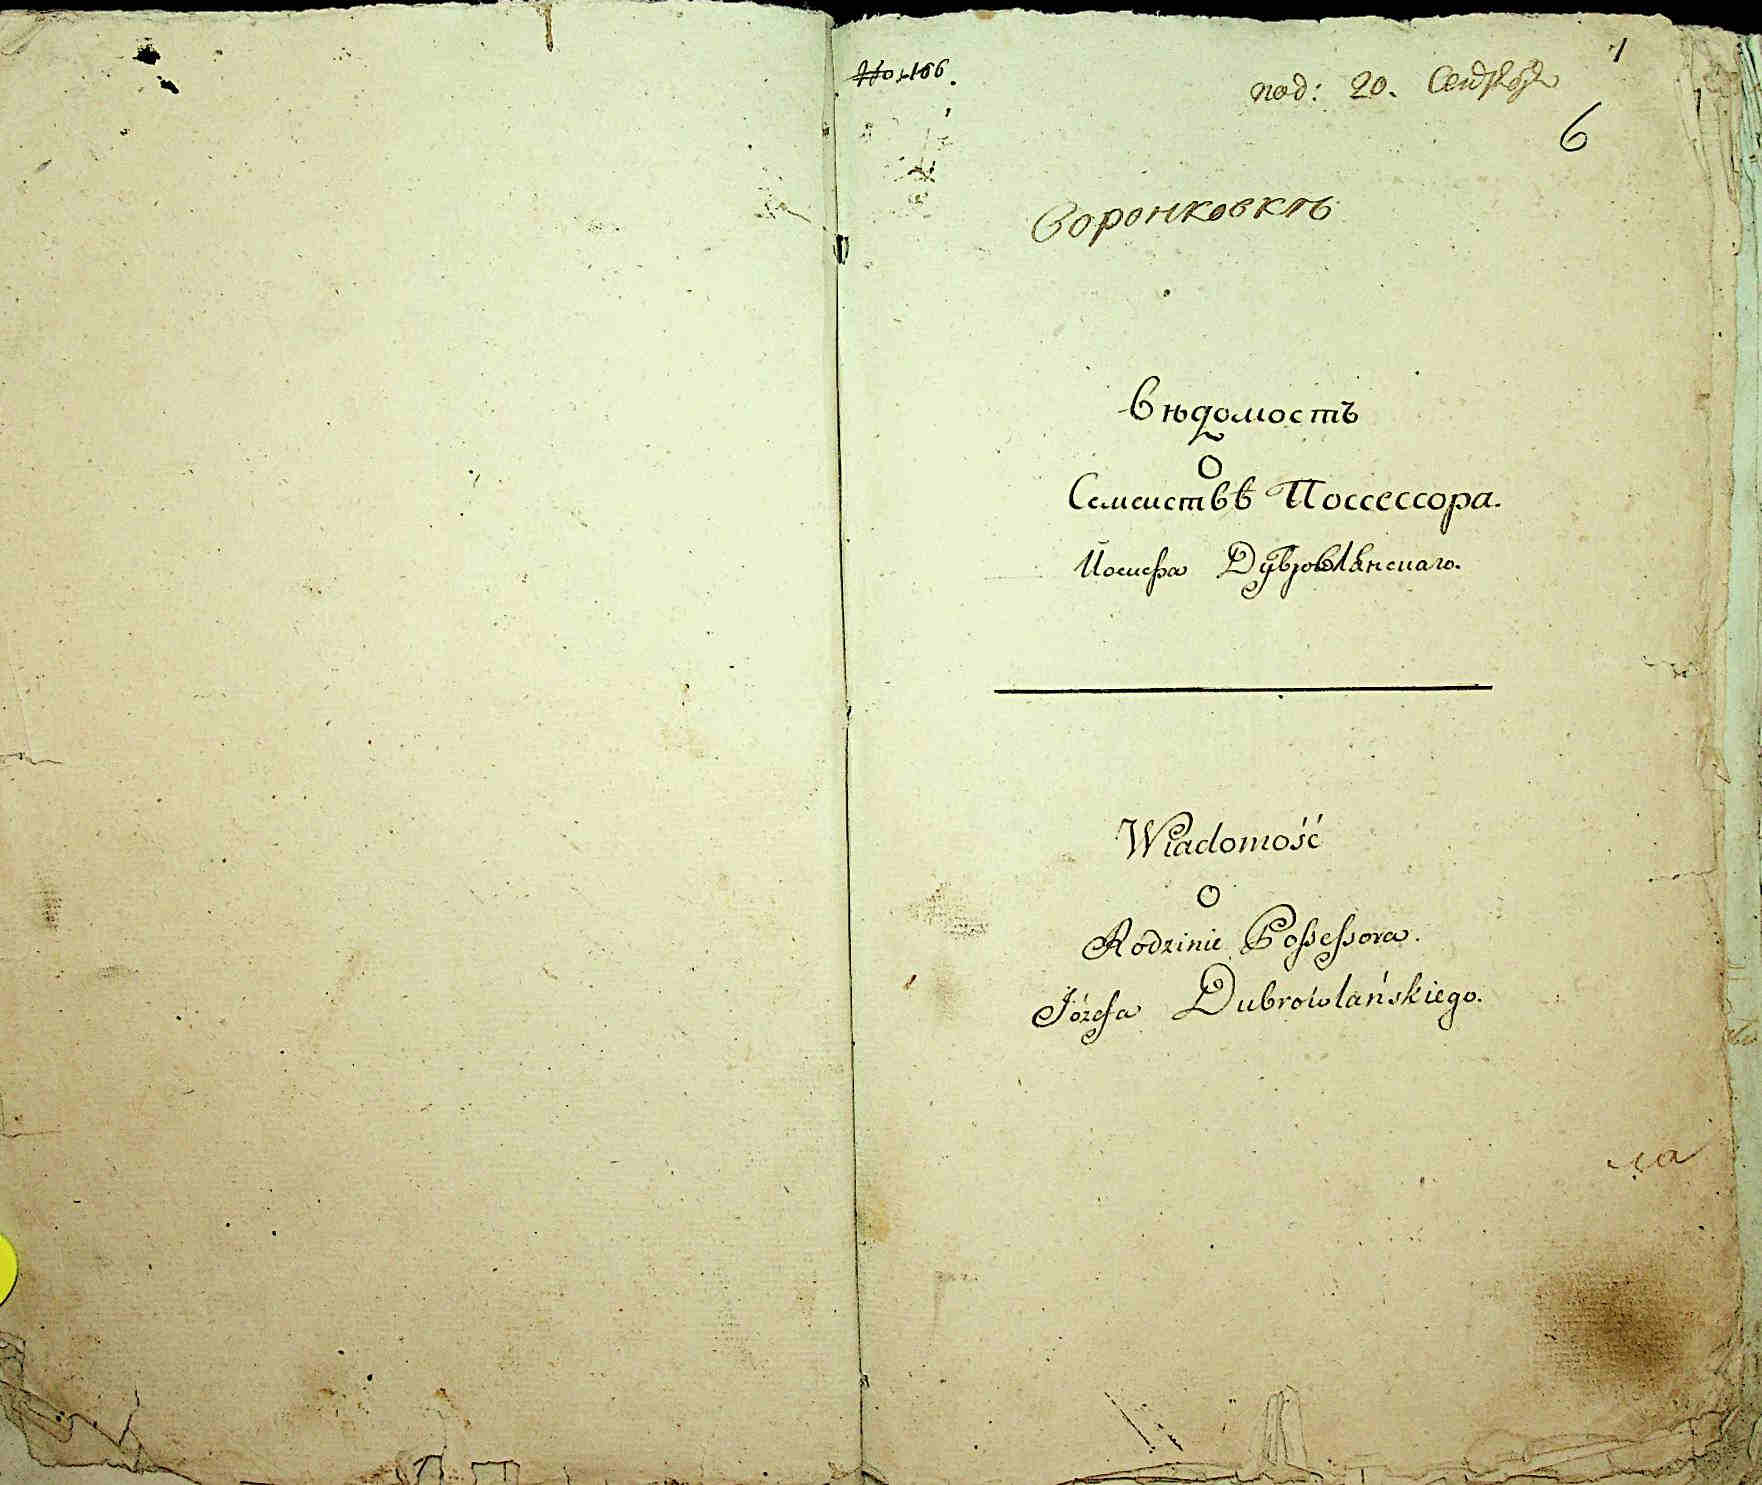 No 166.
1
под: 20. Сентября
6
Воронковкѣ
Вѣдомость
О
Семеиствѣ Поссессора.
Иосифа Дубровлянскаго.
Wiadomość
O
Rodzinie Possessora.
Józefa Dubrowlańskiego.